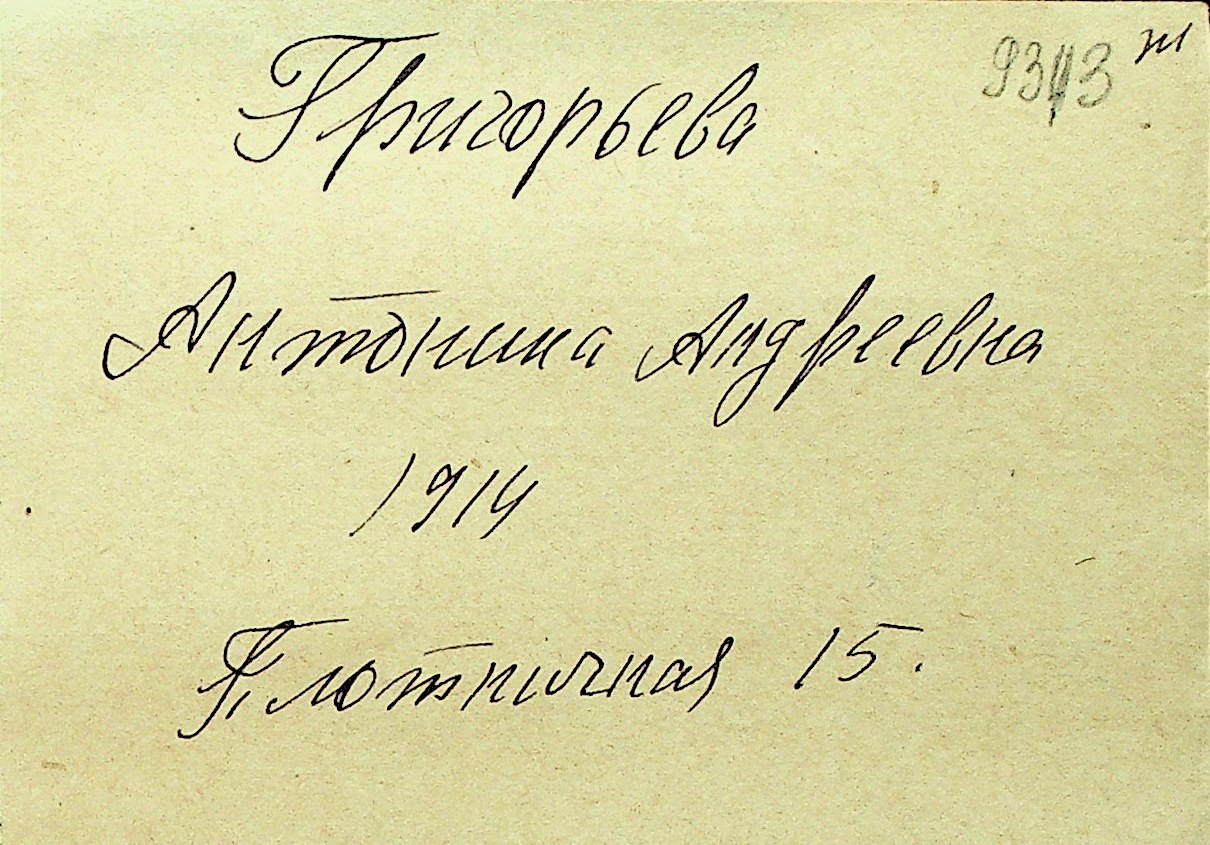 Григорьева
Антонина Андреевна
1914
Плотничная 15.